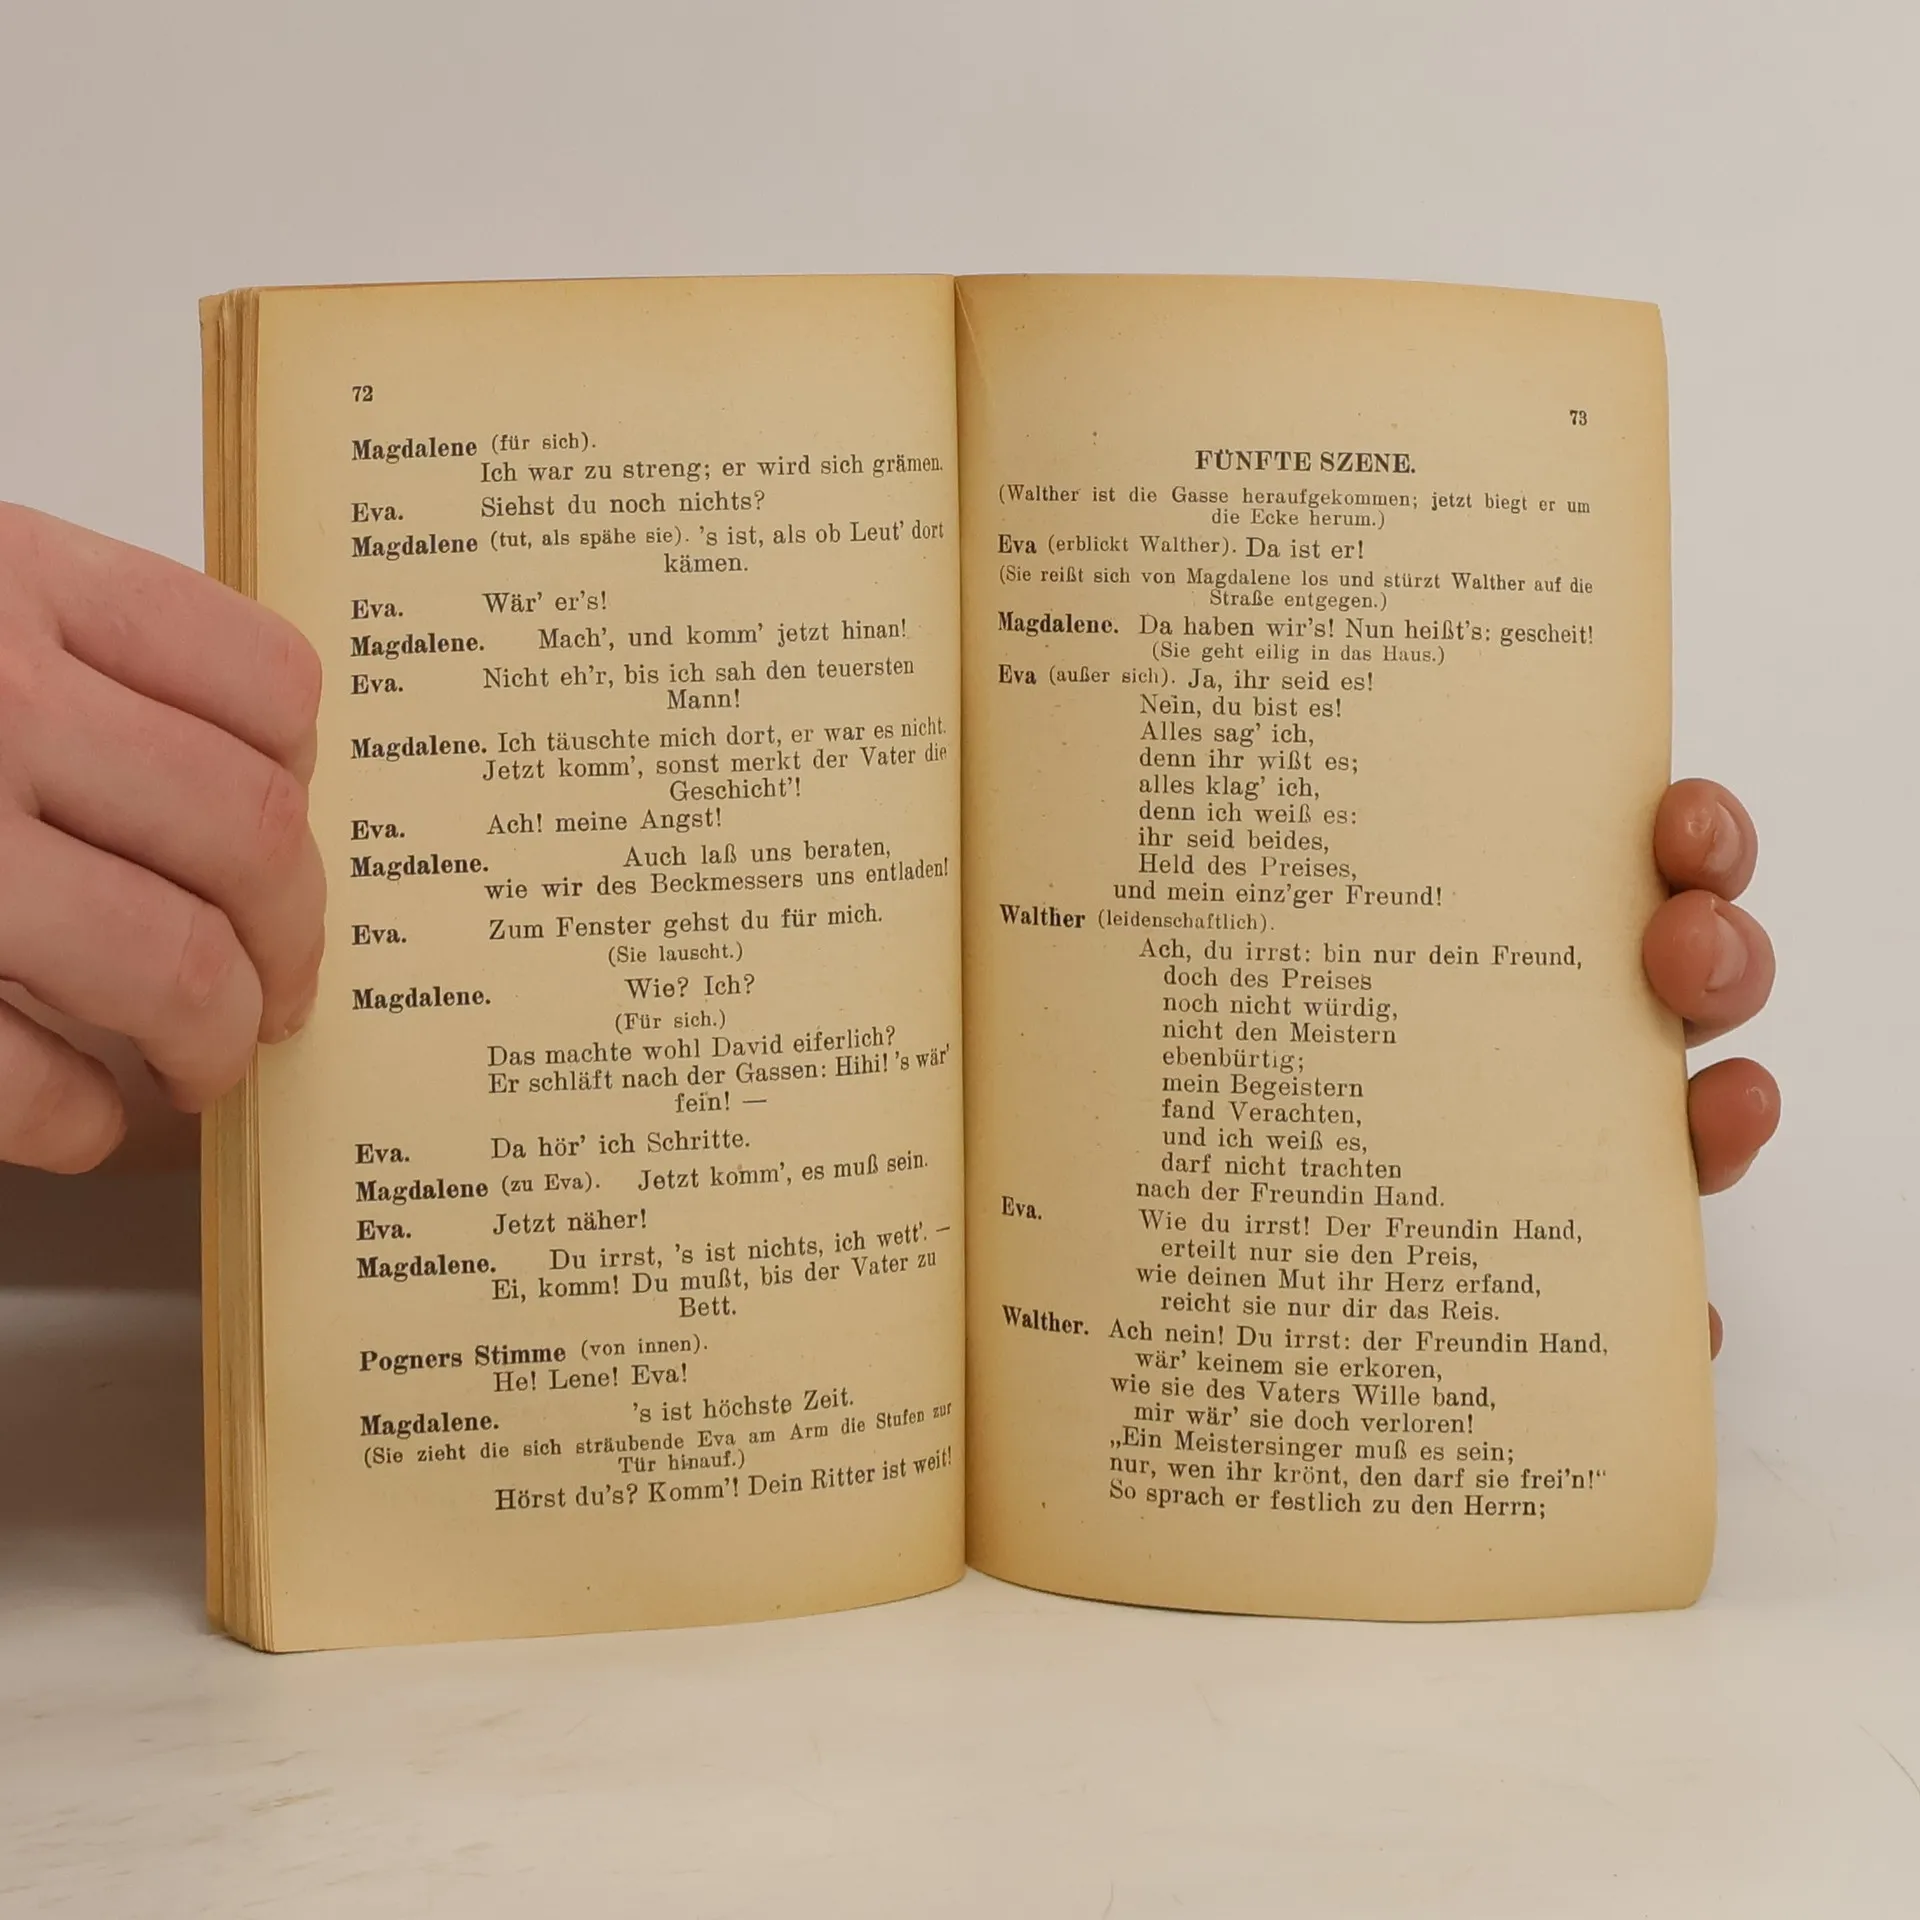 72
Magdalene (für sich).
Ich war zu streng; er wird sich grämen.
Eva. Siehst du noch nichts?
Magdalene (tut, als spähe sie). 's ist, als ob Leut' dort
kämen.
Eva. Wär' er's!
Magdalene. Mach', und komm' jetzt hinan!
Eva. Nicht eh'r, bis ich sah den teuersten
Mann!
Magdalene. Ich täuschte mich dort, er war es nicht.
Jetzt komm', sonst merkt der Vater die
Geschicht'!
Eva. Ach! meine Angst!
Magdalene. Auch laß uns beraten,
wie wir des Beckmessers uns entladen!
Eva. Zum Fenster gehst du für mich.
(Sie lauscht.)
Magdalene. Wie? Ich?
(Für sich.)
Das machte wohl David eiferlich?
Er schläft nach der Gassen: Hihi! 's wär'
fein! —
Eva. Da hör' ich Schritte.
Magdalene (zu Eva). Jetzt komm', es muß sein.
Eva. Jetzt näher!
Magdalene. Du irrst, 's ist nichts, ich wett'. —
Ei, komm! Du mußt, bis der Vater zu
Bett.
Pogners Stimme (von innen).
He! Lene! Eva!
Magdalene. 's ist höchste Zeit.
(Sie zieht die sich sträubende Eva am Arm die Stufen zur
Tür hinauf.)
Hörst du's? Komm'! Dein Ritter ist weit!
73
FÜNFTE SZENE.
(Walther ist die Gasse heraufgekommen; jetzt biegt er um
die Ecke herum.)
Eva (erblickt Walther). Da ist er!
(Sie reißt sich von Magdalene los und stürzt Walther auf die
Straße entgegen.)
Magdalene. Da haben wir's! Nun heißt's: gescheit!
(Sie geht eilig in das Haus.)
Eva (außer sich). Ja, ihr seid es!
Nein, du bist es!
Alles sag' ich,
denn ihr wißt es;
alles klag' ich,
denn ich weiß es:
ihr seid beides,
Held des Preises,
und mein einz'ger Freund!
Walther (leidenschaftlich).
Ach, du irrst: bin nur dein Freund,
doch des Preises
noch nicht würdig,
nicht den Meistern
ebenbürtig;
mein Begeistern
fand Verachten,
und ich weiß es,
darf nicht trachten
nach der Freundin Hand.
Eva. Wie du irrst! Der Freundin Hand,
erteilt nur sie den Preis,
wie deinen Mut ihr Herz erfand,
reicht sie nur dir das Reis.
Walther. Ach nein! Du irrst: der Freundin Hand,
wär' keinem sie erkoren,
wie sie des Vaters Wille band,
mir wär' sie doch verloren!
„Ein Meistersinger muß es sein;
nur, wen ihr krönt, den darf sie frei'n!“
So sprach er festlich zu den Herrn;